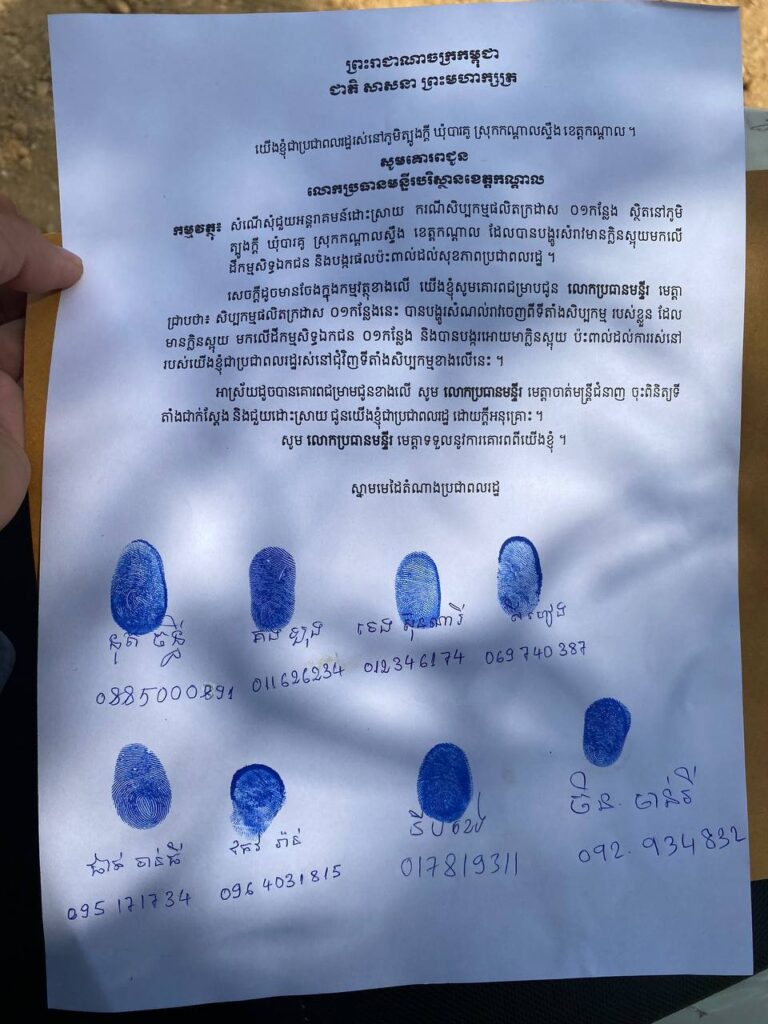 ព្រះរាជាណាចក្រកម្ពុជា
ជាតិ សាសនា ព្រះមហាក្សត្រ
យើងខ្ញុំជាប្រជាពលរដ្ឋរស់នៅភូមិត្បូងក្ដី ឃុំបារគូ ស្រុកកណ្ដាលស្ទឹង ខេត្តកណ្ដាល ។
សូមគោរពជូន
លោកប្រធានមន្ទីរបរិស្ថានខេត្តកណ្ដាល
កម្មវត្ថុ៖ សំណើសុំជួយអន្តរាគមន៍ដោះស្រាយ ករណីសិប្បកម្មផលិតក្រដាស ០១កន្លែង ស្ថិតនៅភូមិ
ត្បូងក្ដី ឃុំបារគូ ស្រុកកណ្ដាលស្ទឹង ខេត្តកណ្ដាល ដែលបានបង្ហូរសំរាវមានក្លិនស្អុយមកលើ
ដីកម្មសិទ្ធឯកជន និងបង្ករផលប៉ះពាល់ដល់សុខភាពប្រជាពលរដ្ឋ ។
សេចក្ដីដូចមានចែងក្នុងកម្មវត្ថុខាងលើ យើងខ្ញុំសូមគោរពជម្រាបជូន លោកប្រធានមន្ទីរ មេត្តា
ជ្រាបថា៖ សិប្បកម្មផលិតក្រដាស ០១កន្លែងនេះ បានបង្ហូរសំណល់រាវចេញពីទីតាំងសិប្បកម្ម របស់ខ្លួន ដែល
មានក្លិនស្អុយ មកលើដីកម្មសិទ្ធឯកជន ០១កន្លែង និងបានបង្ករអោយមាក្លិនស្អុយ ប៉ះពាល់ដល់ការរស់នៅ
របស់យើងខ្ញុំជាប្រជាពលរដ្ឋរស់នៅជុំវិញទីតាំងសិប្បកម្មខាងលើនេះ ។
អាស្រ័យដូចបានគោរពជម្រាមជូនខាងលើ សូម លោកប្រធានមន្ទីរ មេត្តាចាត់មន្ត្រីជំនាញ ចុះពិនិត្យទី
តាំងជាក់ស្ដែង និងជួយដោះស្រាយ ជូនយើងខ្ញុំជាប្រជាពលរដ្ឋ ដោយក្ដីអនុគ្រោះ ។
សូម លោកប្រធានមន្ទីរ មេត្តាទទួលនូវការគោរពពីយើងខ្ញុំ ។
ស្នាមមេដៃតំណាងប្រជាពលរដ្ឋ
គង់ ឡុង
0885000891 011626234 012346174 069740387
ចិន ចាន់រី
095 171734 096 4031815 017819311 092. 934832